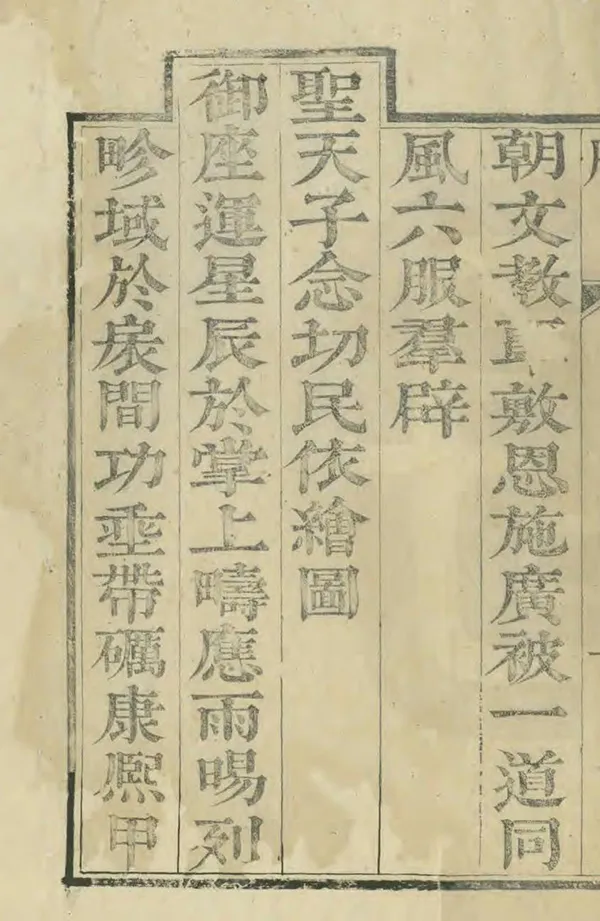 朝文教敷恩施廣被一道同
風六服羣辟
聖天子念切民依繪圖
御座運星辰於掌上疇應雨暘列
畛域於扆間功垂帶礪康熙甲